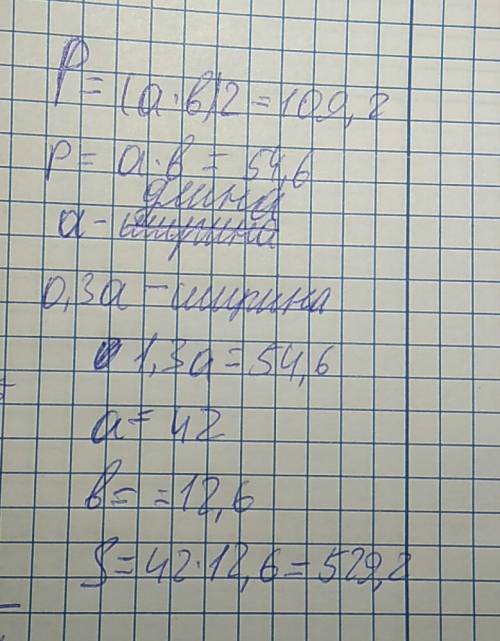 P = (a · b)2 = 109,2
P = a · b = 54,6
длина
a - ширина
0,3a - ширина
1,3a = 54,6
a = 42
b = = 12,6
S = 42 · 12,6 = 529,2